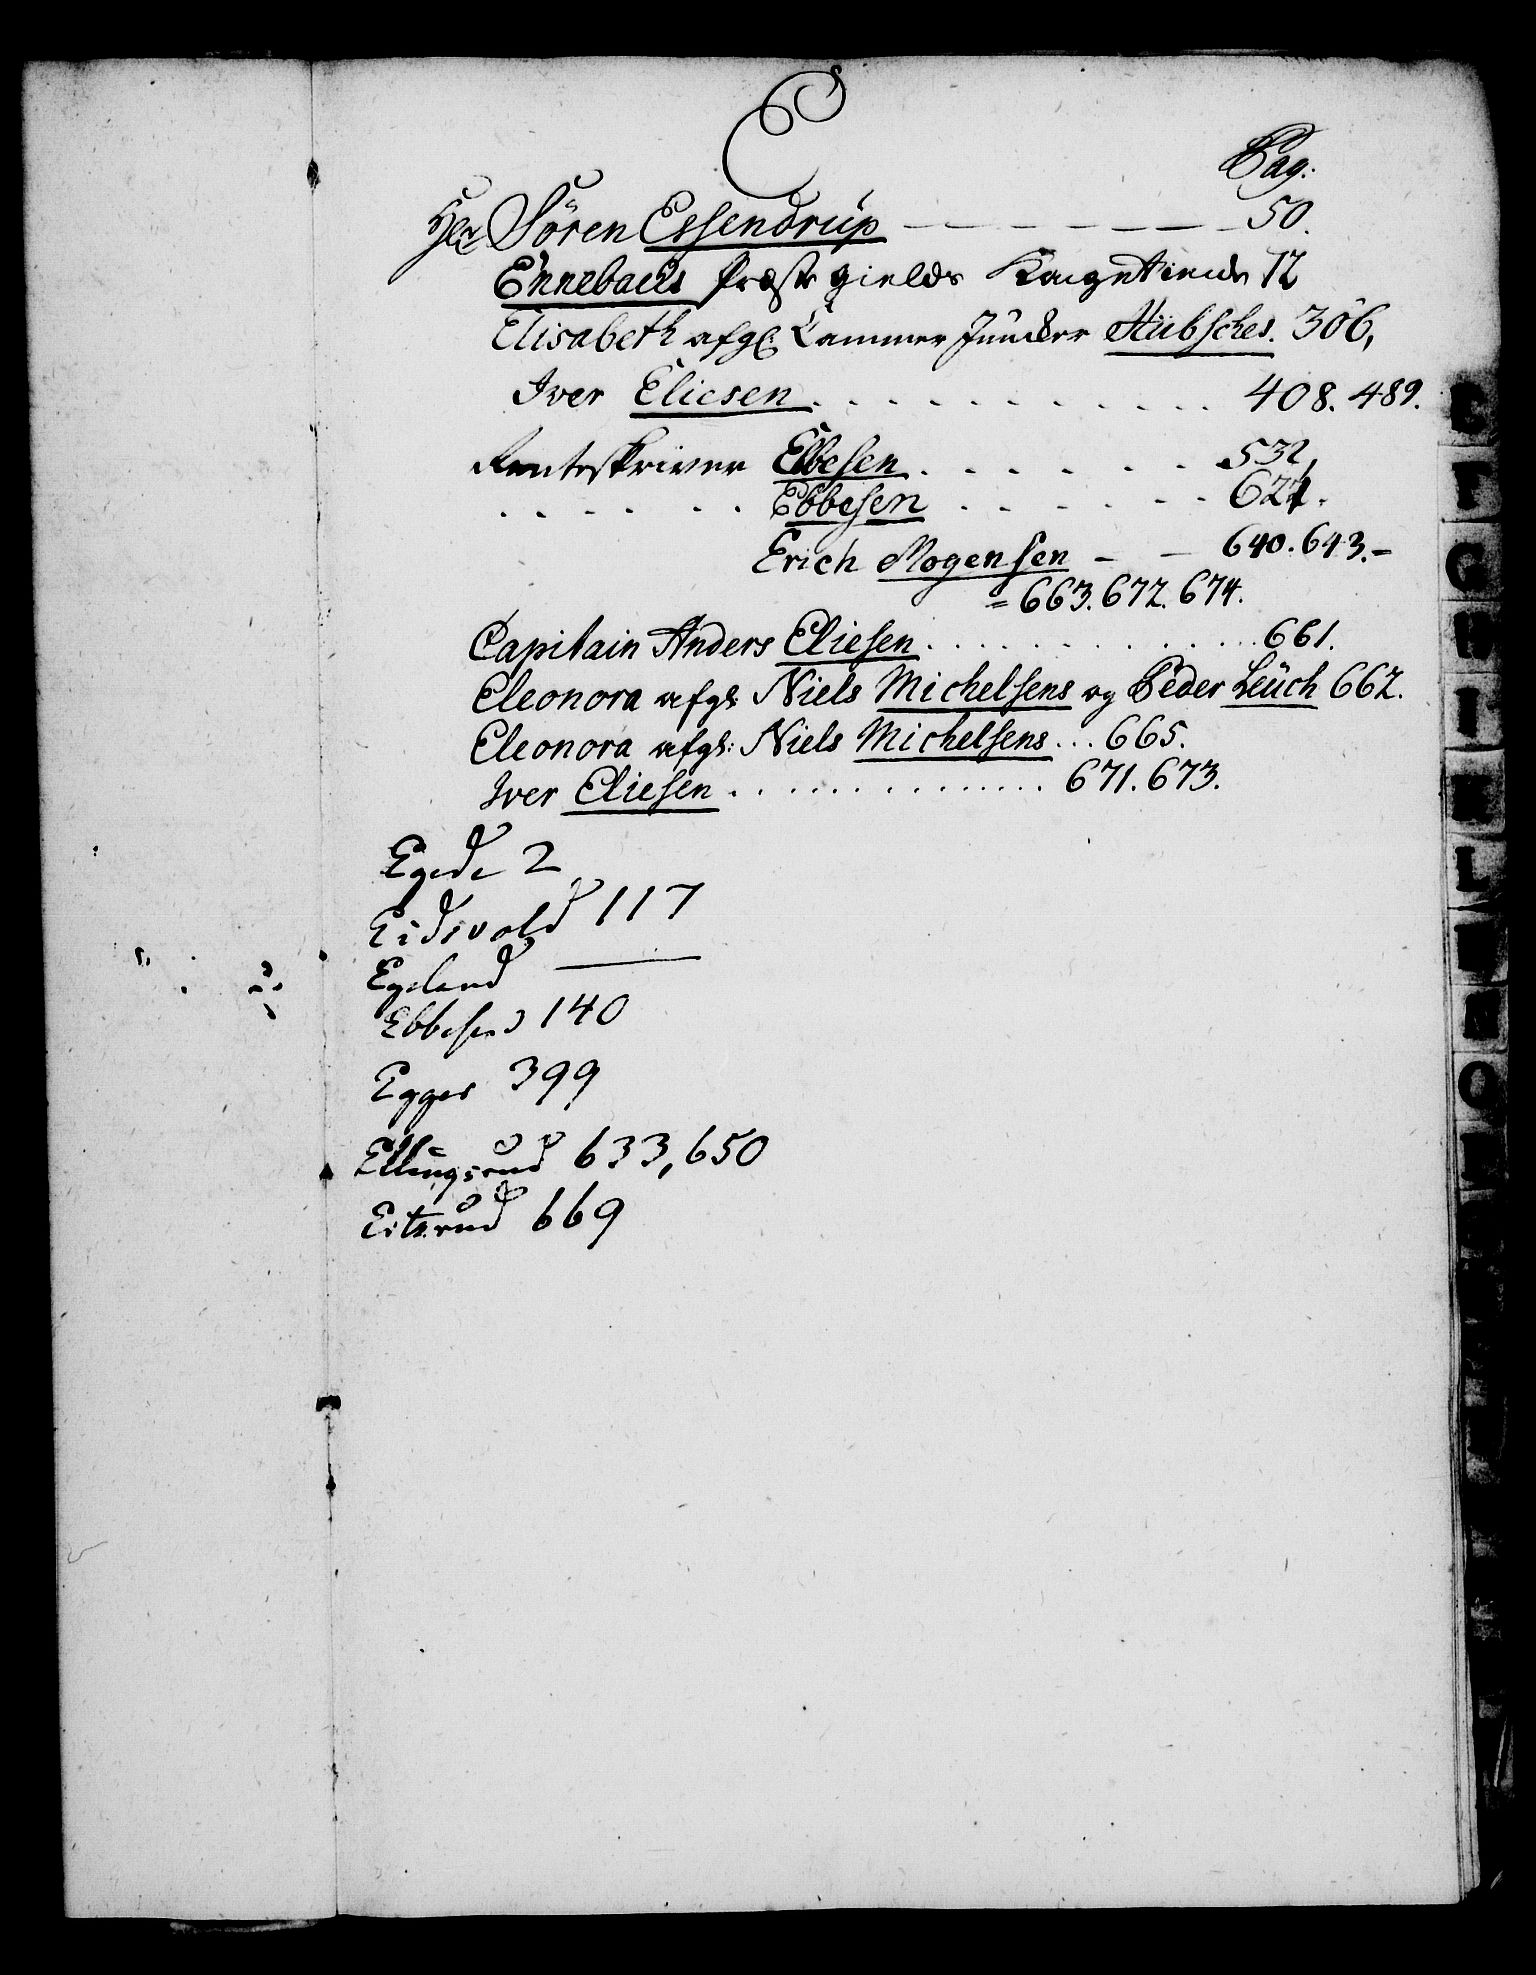 E
Pag:
Hr Sören Essendrup — — — — — — 50.
Ennebacks Præste gields Kongetiende 12
Elisabeth afg: Cammer Juncker Hübsches. 306,
Iver Eliesen . . . . . . . . . . . . 408. 489.
Renteskriver Ebbesen . . . . . . 532,
. . . . . . Ebbesen . . . . . . 624.
Erich Mogensen — — 640. 643. —
= 663. 672. 674.
Capitain Anders Eliesen . . . . . . . . . . 661.
Eleonora afgl: Niels Michelsens og Peder Leüch 662.
Eleonora afgl: Niels Michelsens . . . 665.
Iver Eliesen . . . . . . . . . . . . . . 671. 673.
Egede 2
Eidsvold 117
Egeland —
Ebbesen 140
Egger 399
Ellingsrud 633, 650
Eitsrud 669
E
F
G
H
I
K
L
M
N
O